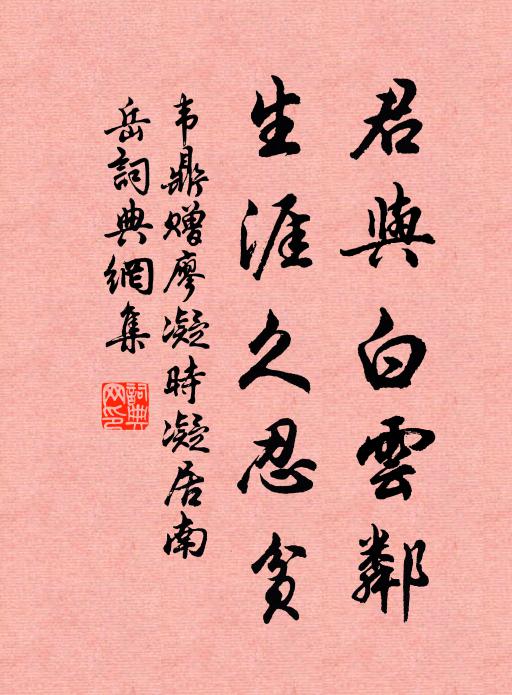 君與白雲鄰
生涯久忍貧
韦鼎赠廖凝時凝居南
岳詞典網集
詞典網印